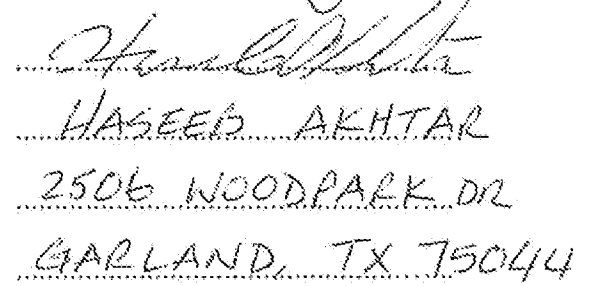 HASEEB AKHTAR
2506 WOODPARK DR
GARLAND, TX 75044